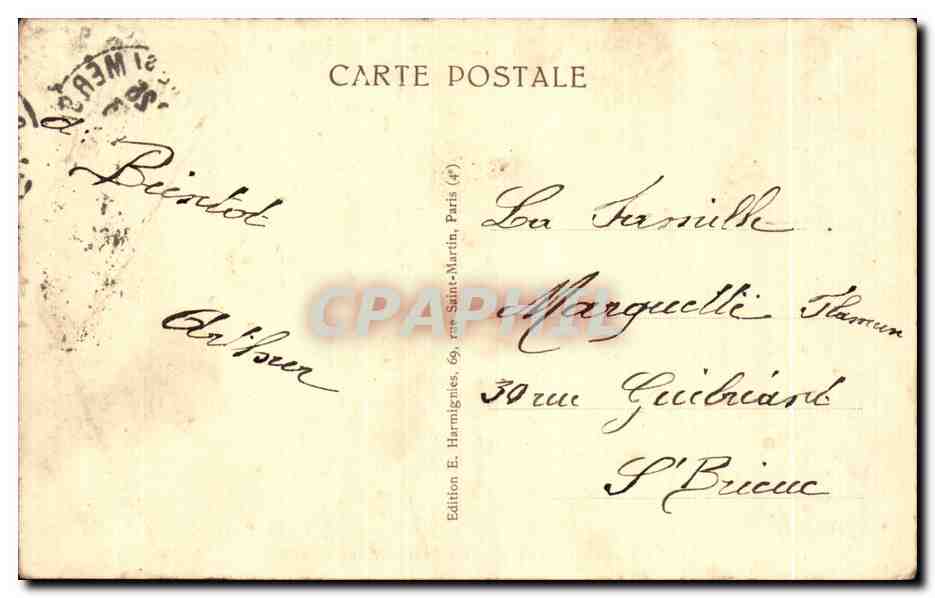 CARTE POSTALE
à Bientot
Arthur
Edition E. Harmignies, 69, rue Saint-Martin, Paris (4e)
La Famille
Marguette Flamen
30 rue Guébriant
St Brieuc
CPAPHIL